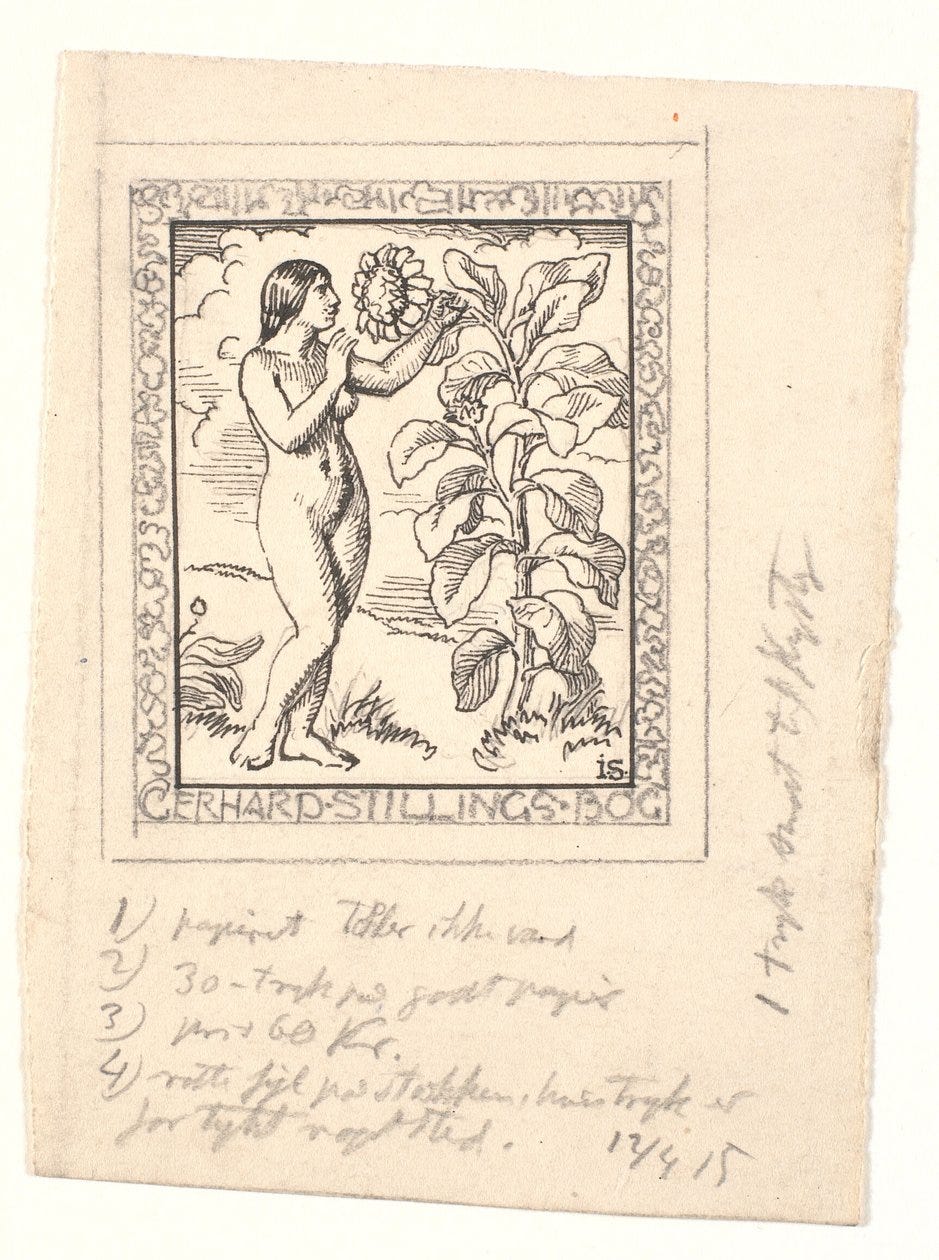 i.S.
GERHARD·STILLINGS·BOG
1) papiret tåler ikke vand
2) 30 - tryk på godt papir
3) pris 60 Kr.
4) rette fejl på stokken, hvis tryk er
for tykt noget sted.
12/4 15
1 tryk snart